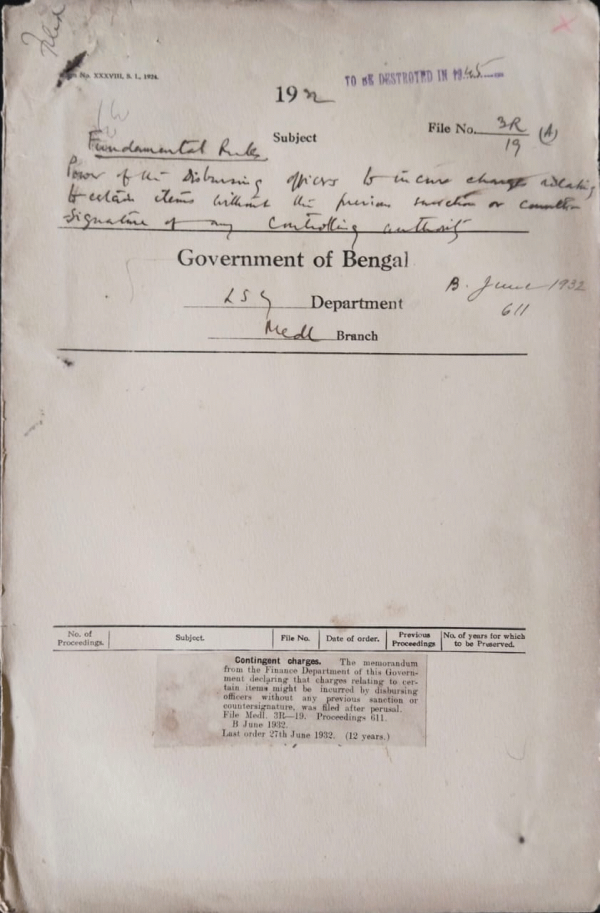 Filed
No. XXXVIII, S. I., 1924.
TO BE DESTROYED IN 1945
1932
Subject
File No. 3R/19 (A)
Fundamental Rules
Power of the Disbursing officers to incur charges relating
to certain items without the previous sanction or counter-
signature of any controlling authority
Government of Bengal
B. June 1932
LSG Department
611
Medl Branch
No. of Proceedings. Subject. File No. Date of order. Previous Proceedings No. of years for which to be Preserved.
Contingent charges. The memorandum
from the Finance Department of this Govern-
ment declaring that charges relating to cer-
tain items might be incurred by disbursing
officers without any previous sanction or
countersignature, was filed after perusal.
File Medl. 3R—19. Proceedings 611.
B June 1932.
Last order 27th June 1932. (12 years.)